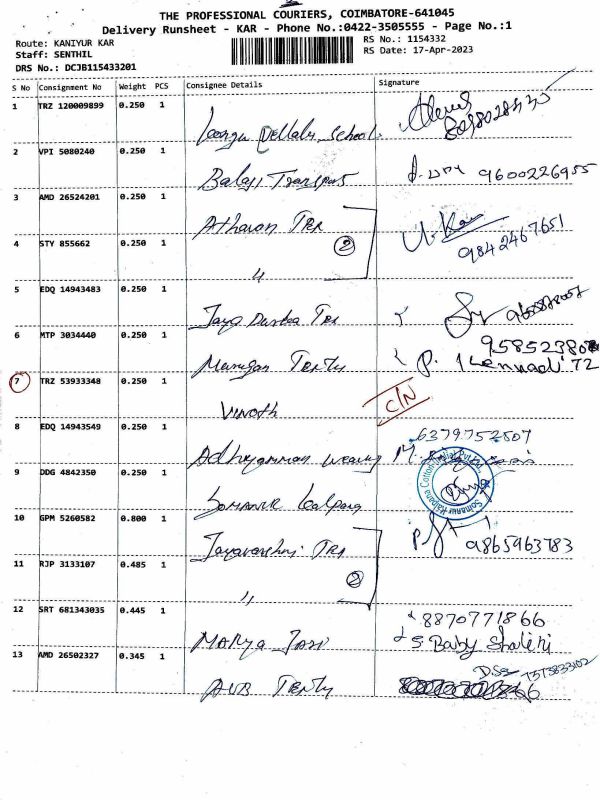 THE PROFESSIONAL COURIERS, COIMBATORE-641045
Delivery Runsheet - KAR - Phone No.:0422-3505555 - Page No.:1
Route: KANIYUR KAR
RS No.: 1154332
Staff: SENTHIL
RS Date: 17-Apr-2023
DRS No.: DCJB115433201
S No Consignment No Weight PCS Consignee Details Signature
1 TRZ 120009899 0.250 1
School
2 VPI 5080240 0.250 1
Balaji Transport 9600226955
3 AMD 26524201 0.250 1
Atharan Tex U. Kan
2
9842467651
4 STY 855662 0.250 1
"
5 EDQ 14943483 0.250 1
Jaya Durka Tex
6 MTP 3034440 0.250 1
Murugan Texty P.
7 TRZ 53933348 0.250 1
Vinoth C/N
8 EDQ 14943549 0.250 1
6379752507
Adhiyamman Weaving
9 DDG 4842350 0.250 1
Somanur Kalpana
Somanur Kalpana Cotton
10 GPM 5260582 0.800 1
Tex
9865963783
11 RJP 3133107 0.485 1
2
"
12 SRT 681343035 0.445 1
8870771866
S. Baby Shalini
13 AMD 26502327 0.345 1
7373833102
AVB Textly